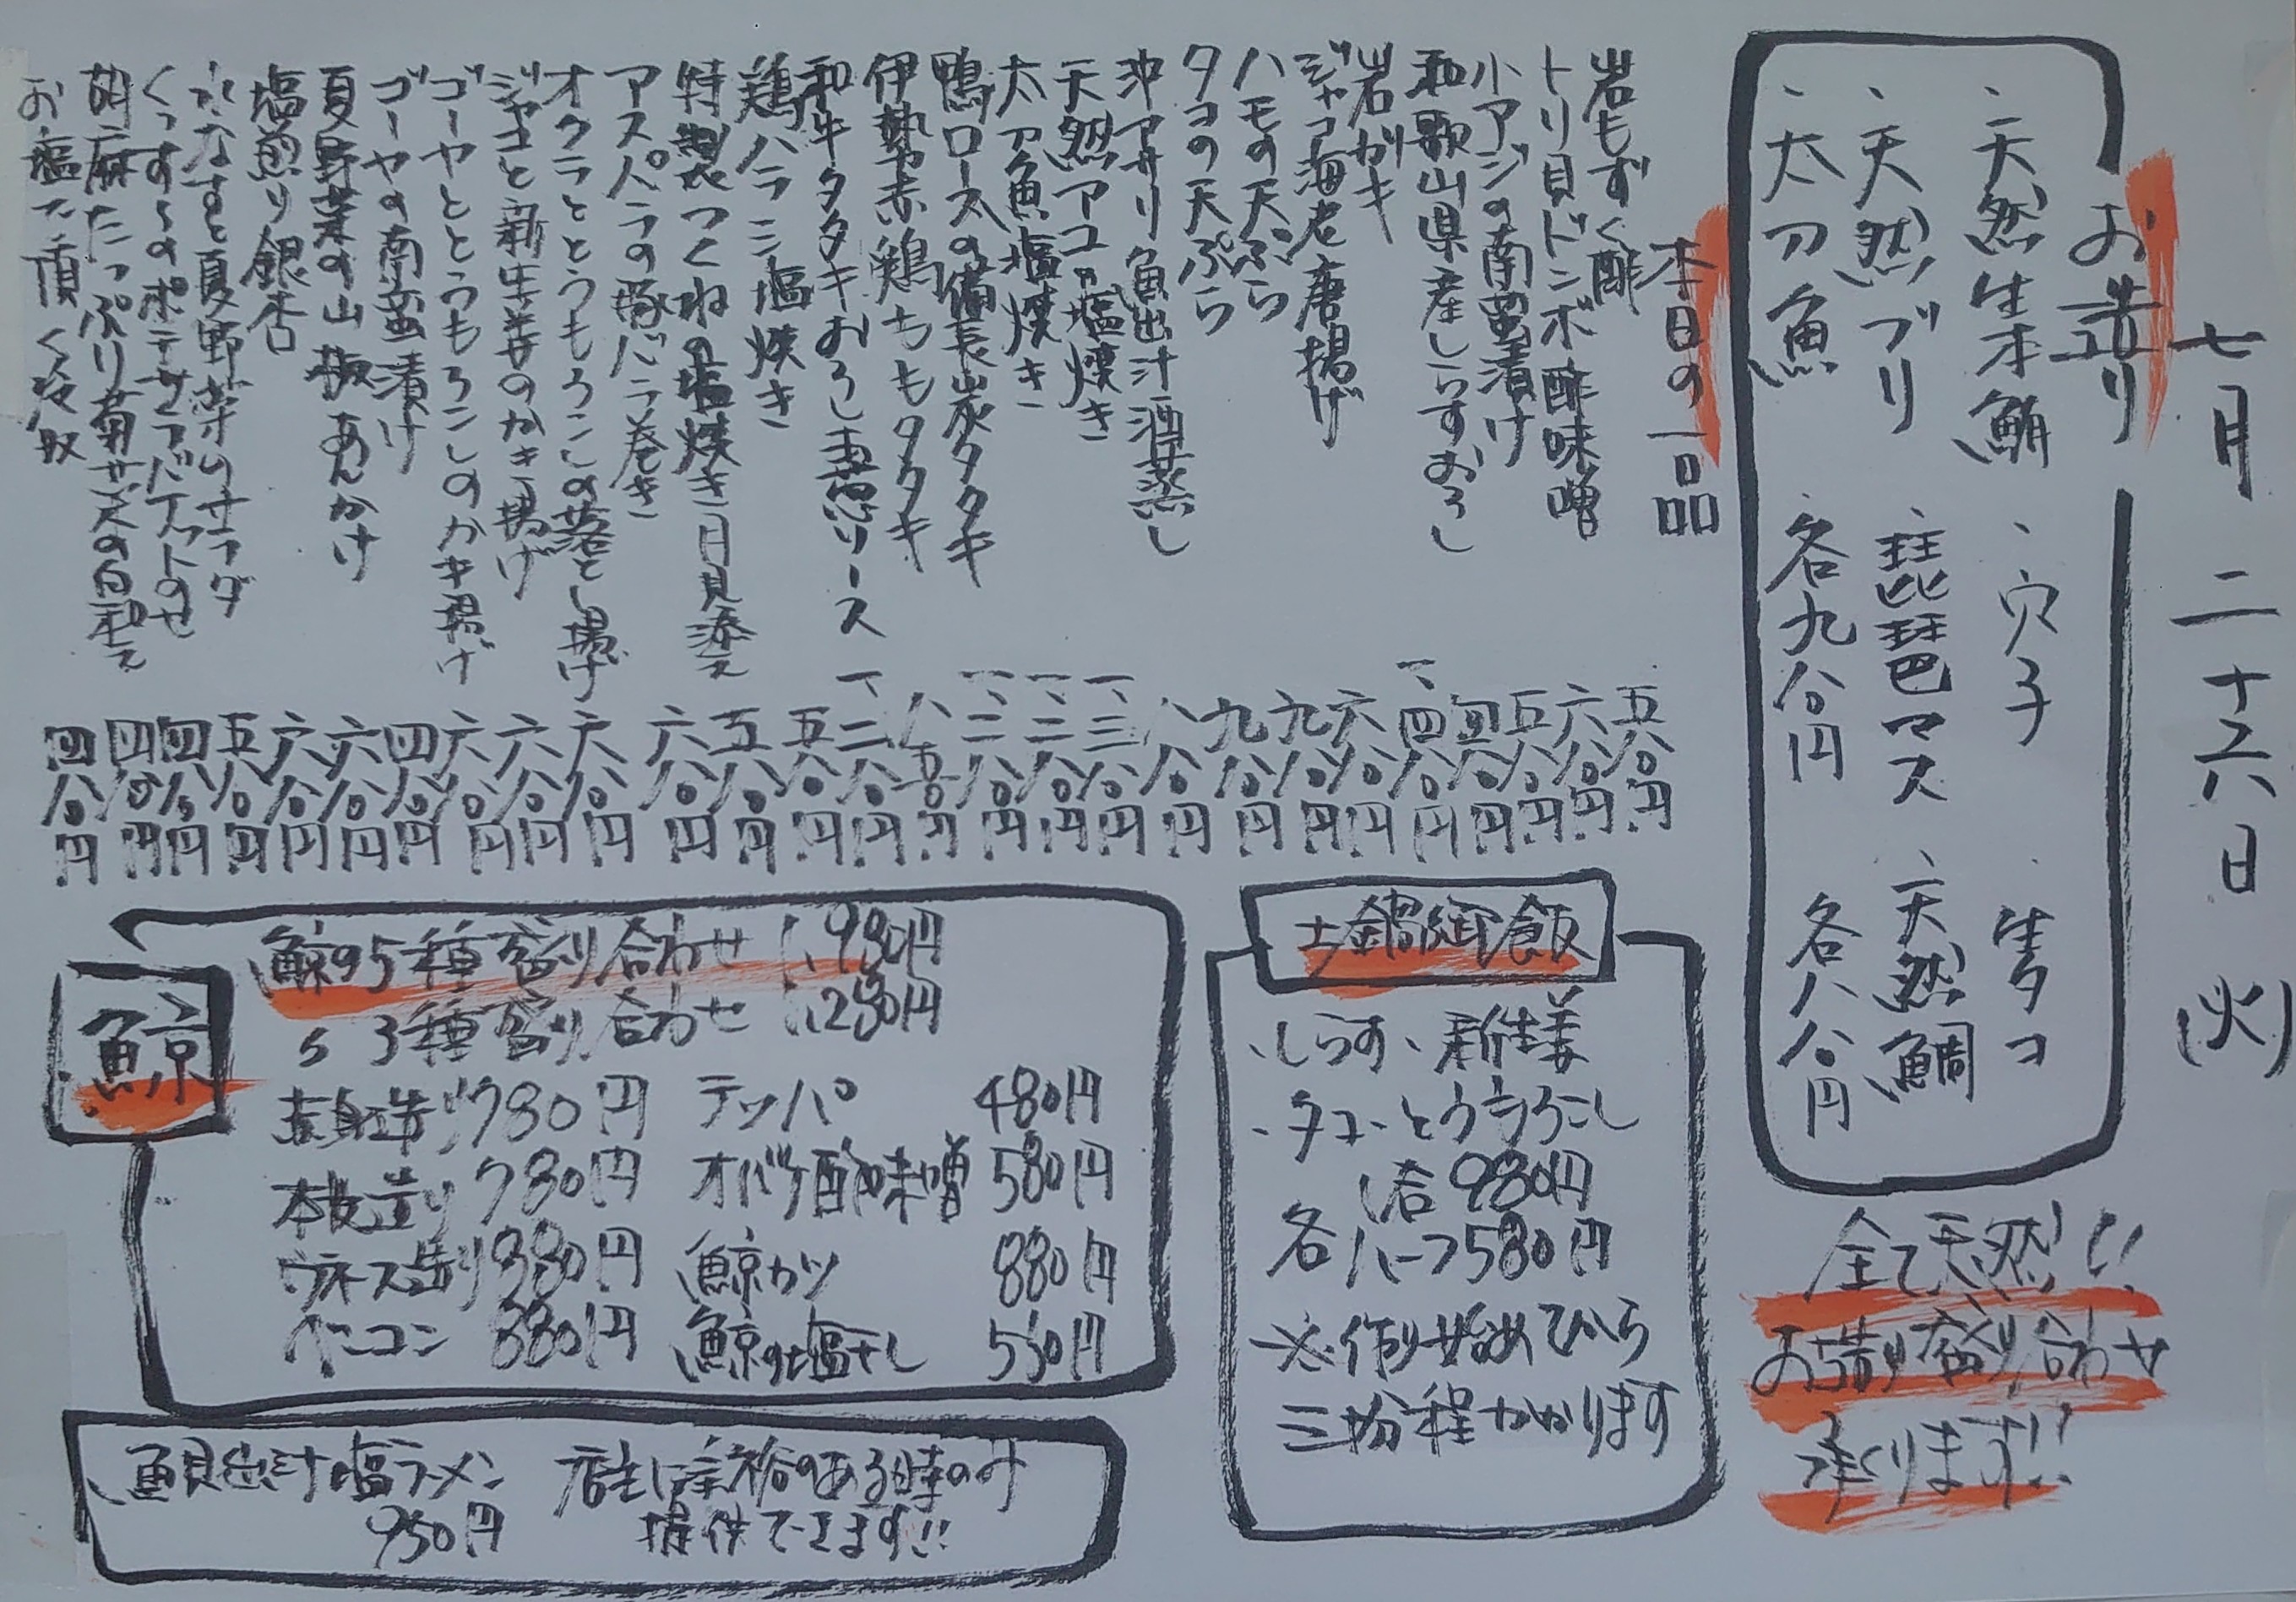 七月二十六日(火)
お造り
、天然生本鮪 、穴子 、生タコ
、天然ブリ 、琵琶マス 、天然鯛
、太刀魚 各九八〇円 各八八〇円
全て天然!!
お造り盛り合わせ
承ります!!
本日の一品
岩もずく酢 五八〇円
トリ貝ドンボ酢味噌 六八〇円
小アジの南蛮漬け 五八〇円
和歌山県産しらすおろし 四八〇円
岩ガキ 一、四八〇円
ジャコ海老唐揚げ 六八〇円
ハモの天ぷら 九八〇円
タコの天ぷら 九八〇円
沖アサリ魚出汁酒蒸し 八八〇円
天然アユの塩焼き 一、三八〇円
太刀魚塩焼き 一、二八〇円
鴨ロースの備長炭タタキ 一、二八〇円
伊勢赤鶏ももタタキ 八五〇円
和牛タタキおろし葱ソース 一、二八〇円
鶏ハラミ塩焼き 五八〇円
特製つくねの塩焼き月見添え 五八〇円
アスパラの豚バラ巻き 六八〇円
オクラととうもろこしの落とし揚げ 六八〇円
ジャコと新生姜のかき揚げ 六八〇円
ゴーヤととうもろこしのかき揚げ 六八〇円
ゴーヤの南蛮漬け 四八〇円
夏野菜の山椒あんかけ 六八〇円
塩煎り銀杏 六八〇円
水なすと夏野菜のサラダ 五八〇円
くっすんのポテサラバケットのせ 四八〇円
胡麻たっぷり菊サ笑の白和え 四八〇円
お塩で頂く冷奴 四八〇円
土鍋御飯
、しらす、新生姜
、タコ、とうもろこし
1合980円
各ハーフ580円
※作り始めてから
三拾分程かかります
鯨
鯨の5種盛り合わせ 1,980円
〃 3種盛り合わせ 1,280円
赤身造り 780円 テッパ 480円
本皮造り 780円 オバケ酢味噌 580円
ウネス造り 880円 鯨カツ 880円
ベーコン 880円 鯨の塩干し 550円
魚貝出汁塩ラーメン 店主に余裕のある時のみ
950円 提供できます!!